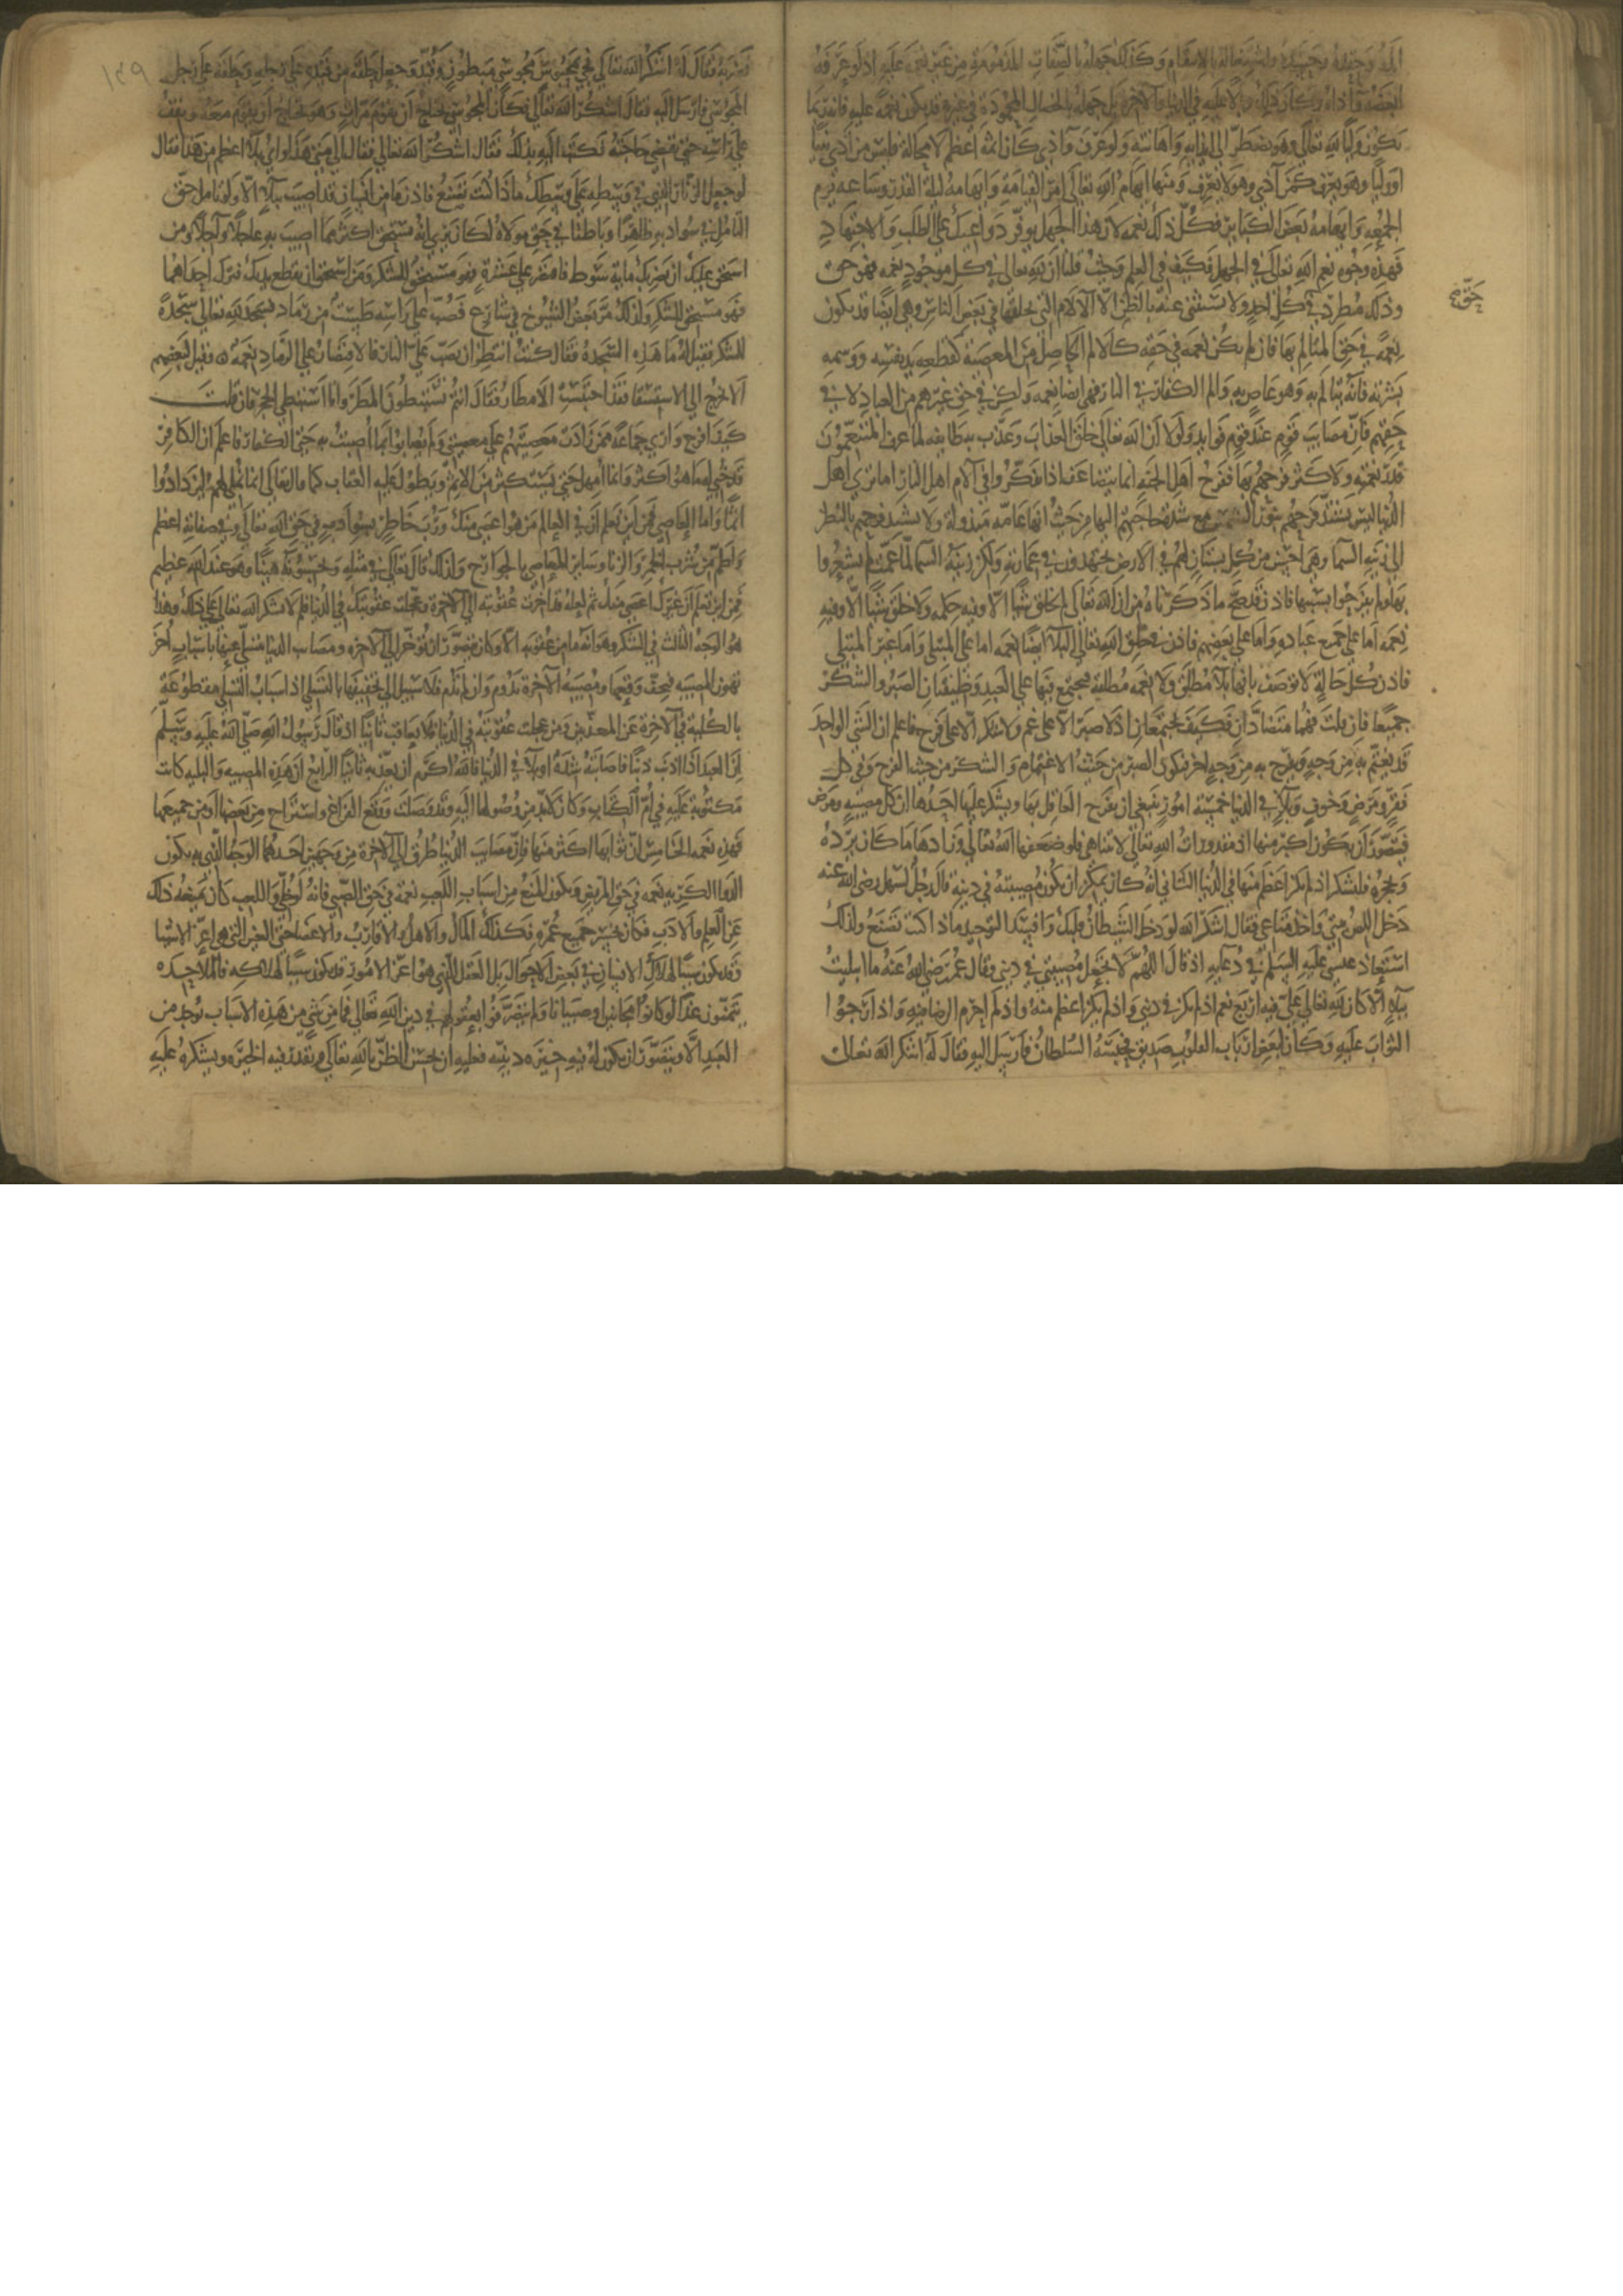 ألمه وحقده وحسده واشتغاله بالانتقام وكذلك جهله بالصفات المذمومة من غيره نعمة عليه اذ لو عرفه
ابغضه وآذاه وكان ذلك وبالا عليه في الدنيا والآخرة بل جهله بالخصال المحمودة في غيره قد يكون نعمة عليه فانه ربما
يكون وليا لله تعالى وهو يضطر الى ايذايه واهانته ولو عرف وآذى كان اثمه اعظم لا محالة فليس من آذى نبيا
او وليا وهو يعرف كمن آذى وهو لا يعرف ومنها ابهام الله تعالى امر القيامة وابهامه ليلة القدر وساعة يوم
الجمعة وابهامه بعض الكباير فكل ذلك نعمه لان هذا الجهل يوفر دواعيك على الطلب والاجتهاد
فهذه وجوه نعم الله تعالى في الجهل فكيف في العلم وحيث قلنا ان لله تعالى في كل موجود نعمة فهو حق
حق
وذلك مطرد في كل احد ولا يستثنى عنه بالظن الا الآلام التي يخلقها في بعض الناس وهي ايضا قد يكون
نعمة في حق المتالم بها فان لم يكن نعمة في حقه كالالم الحاصل من المعصية كقطعه يد نفسه ووشمه
بشرته فانه يتالم به وهو عاص به والم الكفار في النار فهي ايضا نعمه ولكن في حق غيرهم من العباد لا في
حقهم فان مصايب قوم عند قوم فوايد ولولا ان الله تعالى خلق العذاب وعذب به طايفه لما عرف المتنعمون
قدر نعمته ولا كثر فرحهم بها ففرح اهل الجنة انما يتضاعف اذا فكروا في آلام اهل النار اما ترى اهل
الدنيا ليس يشتد فرحهم بنور الشمس مع شدة حاجتهم اليها من حيث انها عامة مبذولة ولا يشتد فرحهم بالنظر
الى زينة السما وهي احسن من كل بستان لهم في الارض يجتهدون في عمارته ولكن زينة السما لما عمت لم يشعروا
بها ولم يفرحوا بسببها فاذن قد صح ما ذكرناه من ان الله تعالى لم يخلق شيا الا وفيه حكمه ولا خلق شيا الا وفيه
نعمه اما على جميع عباده واما على بعضهم فاذن في خلق الله تعالى البلآ ايضا نعمه اما على المبتلى واما غير المبتلى
فاذن كل حالة لا توصف بانها بلآ مطلق ولا نعمه مطلقه فيجتمع فيها على العبد وظيفتان الصبر والشكر
جميعا فان قلت فهما متضادان فكيف يجتمعان اذ لا صبر الا على غم ولا شكر الا على فرح فاعلم ان الشى الواحد
قد يغتم به من وجه ويفرح به من وجه اخر فيكون الصبر من حيث الاغتمام والشكر من حيث الفرح وفي كل
فقر ومرض وخوف وبلآ في الدنيا خمسة امور ينبغي ان يفرح العاقل بها ويشكر عليها احدها ان كل مصيبه ومرض
فيتصور ان يكون اكبر منها اذ مقدورات الله تعالى لا تتناهى فلو ضعفها الله تعالى وزادها ما كان يرده
ويحجزه فليشكر اذ لم يكن اعظم منها في الدنيا الثاني انه كان يمكن ان يكون مصيبته في دينه قال رجل لسهل رضي الله عنه
دخل اللص بيتي واخذ متاعي فقال اشكر الله لو دخل الشيطان قلبك وافسد التوحيد ماذا كنت تصنع ولذلك
استعاذ عيسى عليه السلم في دعايه اذ قال اللهم لا تجعل مصيبتي في ديني وقال عمر رضي الله عنه ما ابتليت
ببلآ الا كان لله تعالى علي فيه اربع نعم اذ لم يكن في ديني واذ لم يكن اعظم منه واذ لم احرم الرضا به واذ ارجوا
الثواب عليه وكان لبعض ارباب القلوب صديق فحبسه السلطان فارسل اليه فقال له اشكر الله تعالى
١٤٩
فضربه فقال له اشكر الله تعالى فجي بمحبوس مجوسي مبطون وقيد وجعل حلقه من قيده على رجله وحلقه على رجل
المجوسي فارسل اليه فقال اشكر الله تعالى فكان المجوسي يحتاج ان يقوم مرات وهو يحتاج ان يقوم معه ويقف
على راسه حتى يقضي حاجته فكتب اليه بذلك فقال اشكر الله تعالى فقال الى متى هذا واي بلآ اعظم من هذا فقال
لو جعل الزنار الذي في وسطه على وسطك ماذا كنت تصنع فاذن ما من انسان قد اصيب ببلآ الا ولو تامل حق
التامل في سو ادبه ظاهرا وباطنا في حق مولاه لكان يرى انه يستحق اكثر مما اصيب به عاجلا وآجلا ومن
استحق عليك ان يضربك ماية سوط فاقتصر على عشرة فهو مستحق للشكر ومن استحق ان يقطع يديك فترك احداهما
فهو مستحق للشكر ولذلك مر بعض الشيوخ في شارع فصب على راسه طست من رماد فسجد لله تعالى سجدة
للشكر فقيل له ما هذه السجدة فقال كنت انتظر ان يصب علي النار فالاقتصار على الرماد نعمة وقيل لبعضهم
الا تخرج الى الاستسقا فقد احتبست الامطار فقال انتم تستبطون المطر وانا استبطي الحجر فان قلت
كيف افرح وارى جماعة ممن زادت معصيتهم على معصيتي ولم يصابوا بما اصبت به حتى الكفار فاعلم ان الكافر
قد خبي له ما هو اكثر وانما امهل حتى يستكثر من الاثم ويطول عليه العقاب كما قال تعالى انما نملي لهم ليزدادوا
اثما واما العاصي فمن اين تعلم ان في العالم من هو اعصى منك ورب خاطر بسو ادب في حق الله تعالى وفي صفاته اعظم
واطم من شرب الخمر والزنا وساير المعاصي بالجوارح ولذلك قال تعالى في مثله وتحسبونه هينا وهو عند الله عظيم
فمن اين تعلم ان غيرك اعصى منك ثم لعله قد اخرت عقوبته الى الآخرة وعجلت عقوبتك في الدنيا فلم لا تشكر الله تعالى على ذلك وهذا
هو الوجه الثالث في الشكر وهو انه ما من عقوبه الا وكان يتصور ان تؤخر الى الآخره ومصايب الدنيا يتسلى عنها باسباب اخر
تهون المصيبه فيخف وقعها ومصيبة الآخرة تدوم وان لم تدم فلا سبيل الى تخفيفها بالتسلي اذ اسباب التسلي مقطوعة
بالكليه في الآخرة عن المعذبين ومن عجلت عقوبته في الدنيا فلا يعاقب ثانيا اذ قال رسول الله صلى الله عليه وسلم
ان العبد اذا اذنب ذنبا فاصابته شدة او بلآ في الدنيا فالله اكرم ان يعذبه ثانيا الرابع ان هذه المصيبه والبليه كانت
مكتوبة عليه في ام الكتاب وكان لابد من وصولها اليه وقد وصلت ووقع الفراغ واستراح من بعضها او من جميعها
فهذه نعمه الخامس ان ثوابها اكثر منها فان مصايب الدنيا طرق الى الآخرة من وجهين احدهما الوجه الذي به يكون
الدوا الكريه نعمة في حق المريض ويكون المنع من اسباب اللعب نعمة في حق الصبي فانه لو خلي واللعب كان يمنعه ذلك
عن العلم والادب فكان يخسر جميع عمره فكذلك المال والاهل والاقارب والاعضا حتى العين التي هي اعز الاشيا
قد يكون سببا لهلاك الانسان في بعض الاحوال بل العقل الذي هو اعز الامور قد يكون سببا لهلاكه فالملاحده
يتمنون غدا لو كانوا مجانين او صبيانا ولم يتصرفوا بعقولهم في دين الله تعالى فما من شي من هذه الاسباب توجد من
العبد الا ويتصور ان يكون له فيه خيره دينيه فعليه ان يحسن الظن بالله تعالى ويقدر فيه الخيره ويشكره عليه